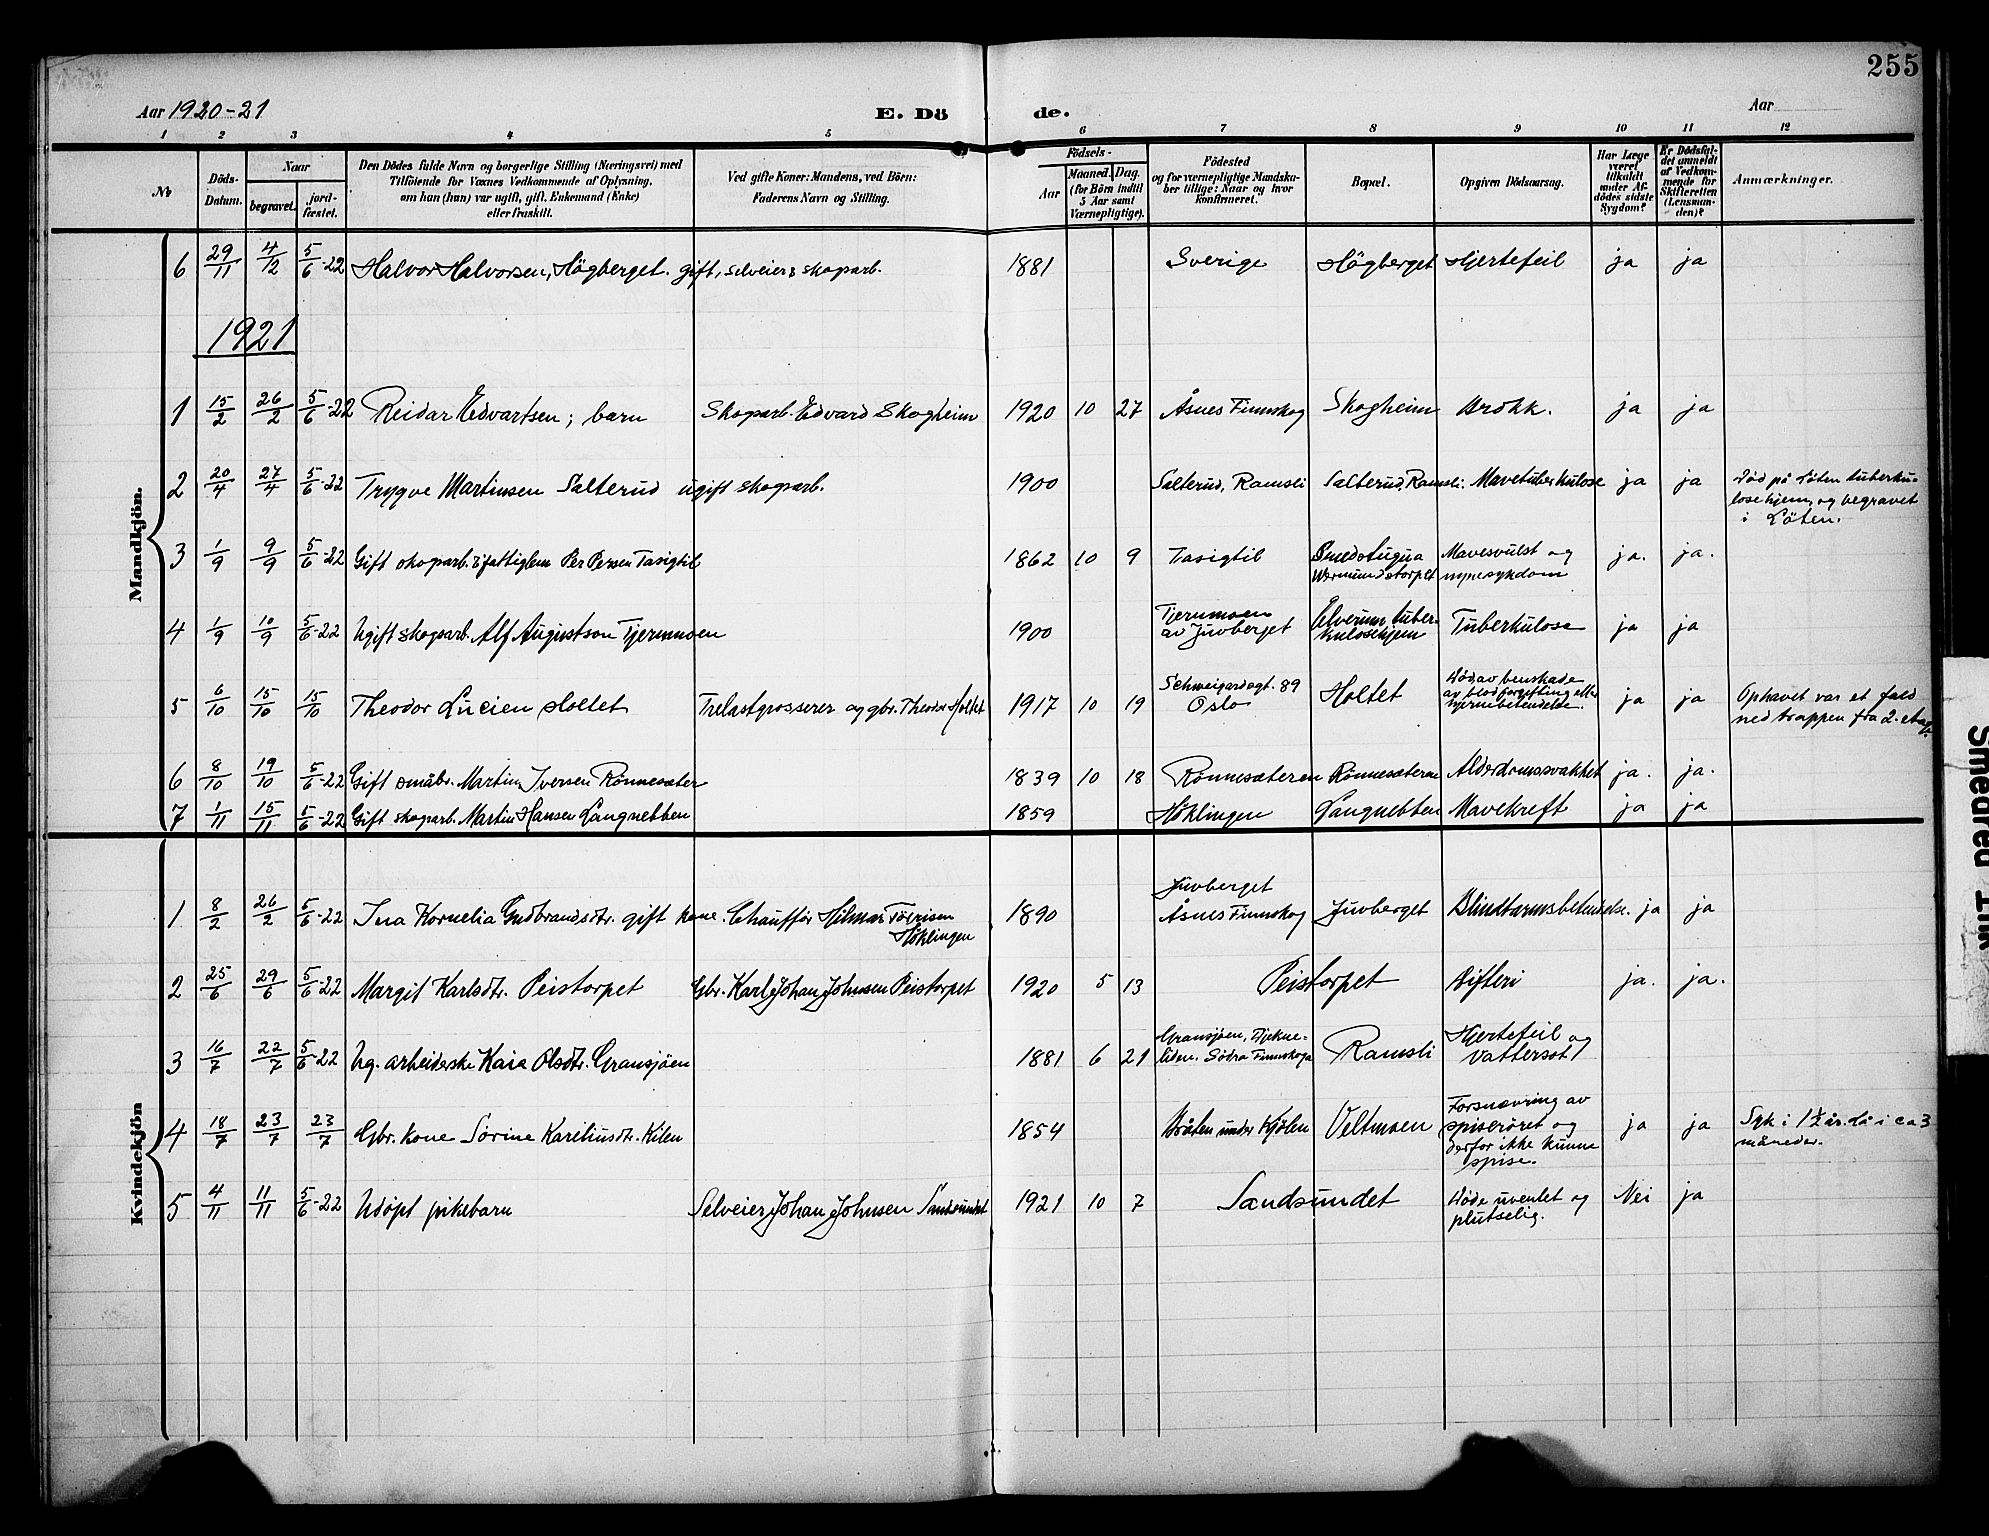 255
Aar 1920-21 E. Dö de. Aar
1 2 3 4 5 6 7 8 9 10 11 12
No Döds-Datum. Naar begravet. jord-fæstet. Den Dödes fulde Navn og borgerlige Stilling (Næringsvei) med Tilföiende for Voxnes Vedkommende af Oplysning, om han (hun) var ugift, gift, Enkemand (Enke) eller fraskilt. Ved gifte Koner: Mandens, ved Börn: Faderens Navn og Stilling. Födsels- Aar Maaned. Dag. (for Börn indtil 5 Aar samt Værnepligtige). Födested og for værnepligtige Mandskaber tillige: Naar og hvor konfirmeret. Bopæl. Opgiven Dödsaarsag. Har Læge været tilkaldt under Afdödes sidste Sygdom? Er Dödsfaldet anmeldt af Vedkommende for Skifteretten (Lensmanden)? Anmærkninger.
Mandkjön.
6 29/11 4/12 5/6-22 Halvor Halvorsen, Högberget. gift, selveier & skogarb. 1881 Sverige Högberget Hjertefeil ja ja
1921
1 15/2 26/2 5/6-22 Reidar Edvartsen; barn Skogarb. Edvard Skogheim 1920 10 27 Åsnes Finnskog Skogheim Brokk. ja ja
2 20/4 27/4 5/6-22 Trygve Martinsen Salterud ugift skogarb. 1900 Salterud, Ramsli Salterud, Ramsli. Mavetuberkulose ja ja Död på Löten tuberkulosehjem, og begravet i Löten.
3 1/9 9/9 5/6-22 Gift skogarb. & fattiglem Per Persen Tasigtil 1862 10 9 Tasigtil Smedstugua Wermundstorpet Mavesvulst og nyresykdom ja. ja.
4 1/9 10/9 5/6-22 Ugift skogsarb. Alf Augustson Tjernmoen 1900 Tjernmoen av Juvberget Elverum tuberkulosehjem Tuberkulose ja ja
5 6/10 15/10 15/10 Theodor Lucien Holtet Trelastgrosserer og gbr. Theodor Holtet 1917 10 19 Schweigaardsgt. 89 Oslo Holtet Död av benskade og blodforgiftning eller hjernebetendelse. ja ja Ophavet var et fald ned trappen fra 2. etag.
6 8/10 19/10 5/6-22 Gift småbr. Martin Iversen Rönnesæter 1839 10 18 Rönnesæteren Rönnesæteren Alderdomssvakhet ja. ja.
7 1/11 15/11 5/6-22 Gift skogarb. Martin Hansen Langnebben 1859 Höklingen Langnebben Mavekreft ja ja
Kvindekjön
1 8/2 26/2 5/6-22 Ina Kornelia Gudbrandsdtr. gift kone. Chaufför Hilmar Töerisen Höklingen 1890 Juvberget Åsnes Finnskog Juvberget Blindtarmsbetendelse. ja ja
2 25/6 29/6 5/6-22 Margit Karlsdtr. Peistorpet Gbr. Karl Johan Johnsen Peistorpet 1920 5 13 Peistorpet Difteri ja. ja.
3 16/7 22/7 5/6-22 Ug. arbeiderske Kaia Olsdtr. Gransjöen 1881 6 21 Gransjöen, Södra Finnskoga Ramsli Hjertefeil og Vattersot
4 18/7 23/7 23/7 Gbr. kone Sörine Kareliusdtr. Kilen 1854 Bråten under Kjölen Veltmoen Forsnævring av spiseröret og derfor ikke kunne spise. ja ja Syk i 1½ år. Lå i ca 3 måneder.
5 4/11 11/11 5/6-22 Udöpt pikebarn Selveier Johan Johnsen Sandsundet 1921 10 7 Sandsundet Döde uventet og plutselig. Nei ja
Smeared Ink